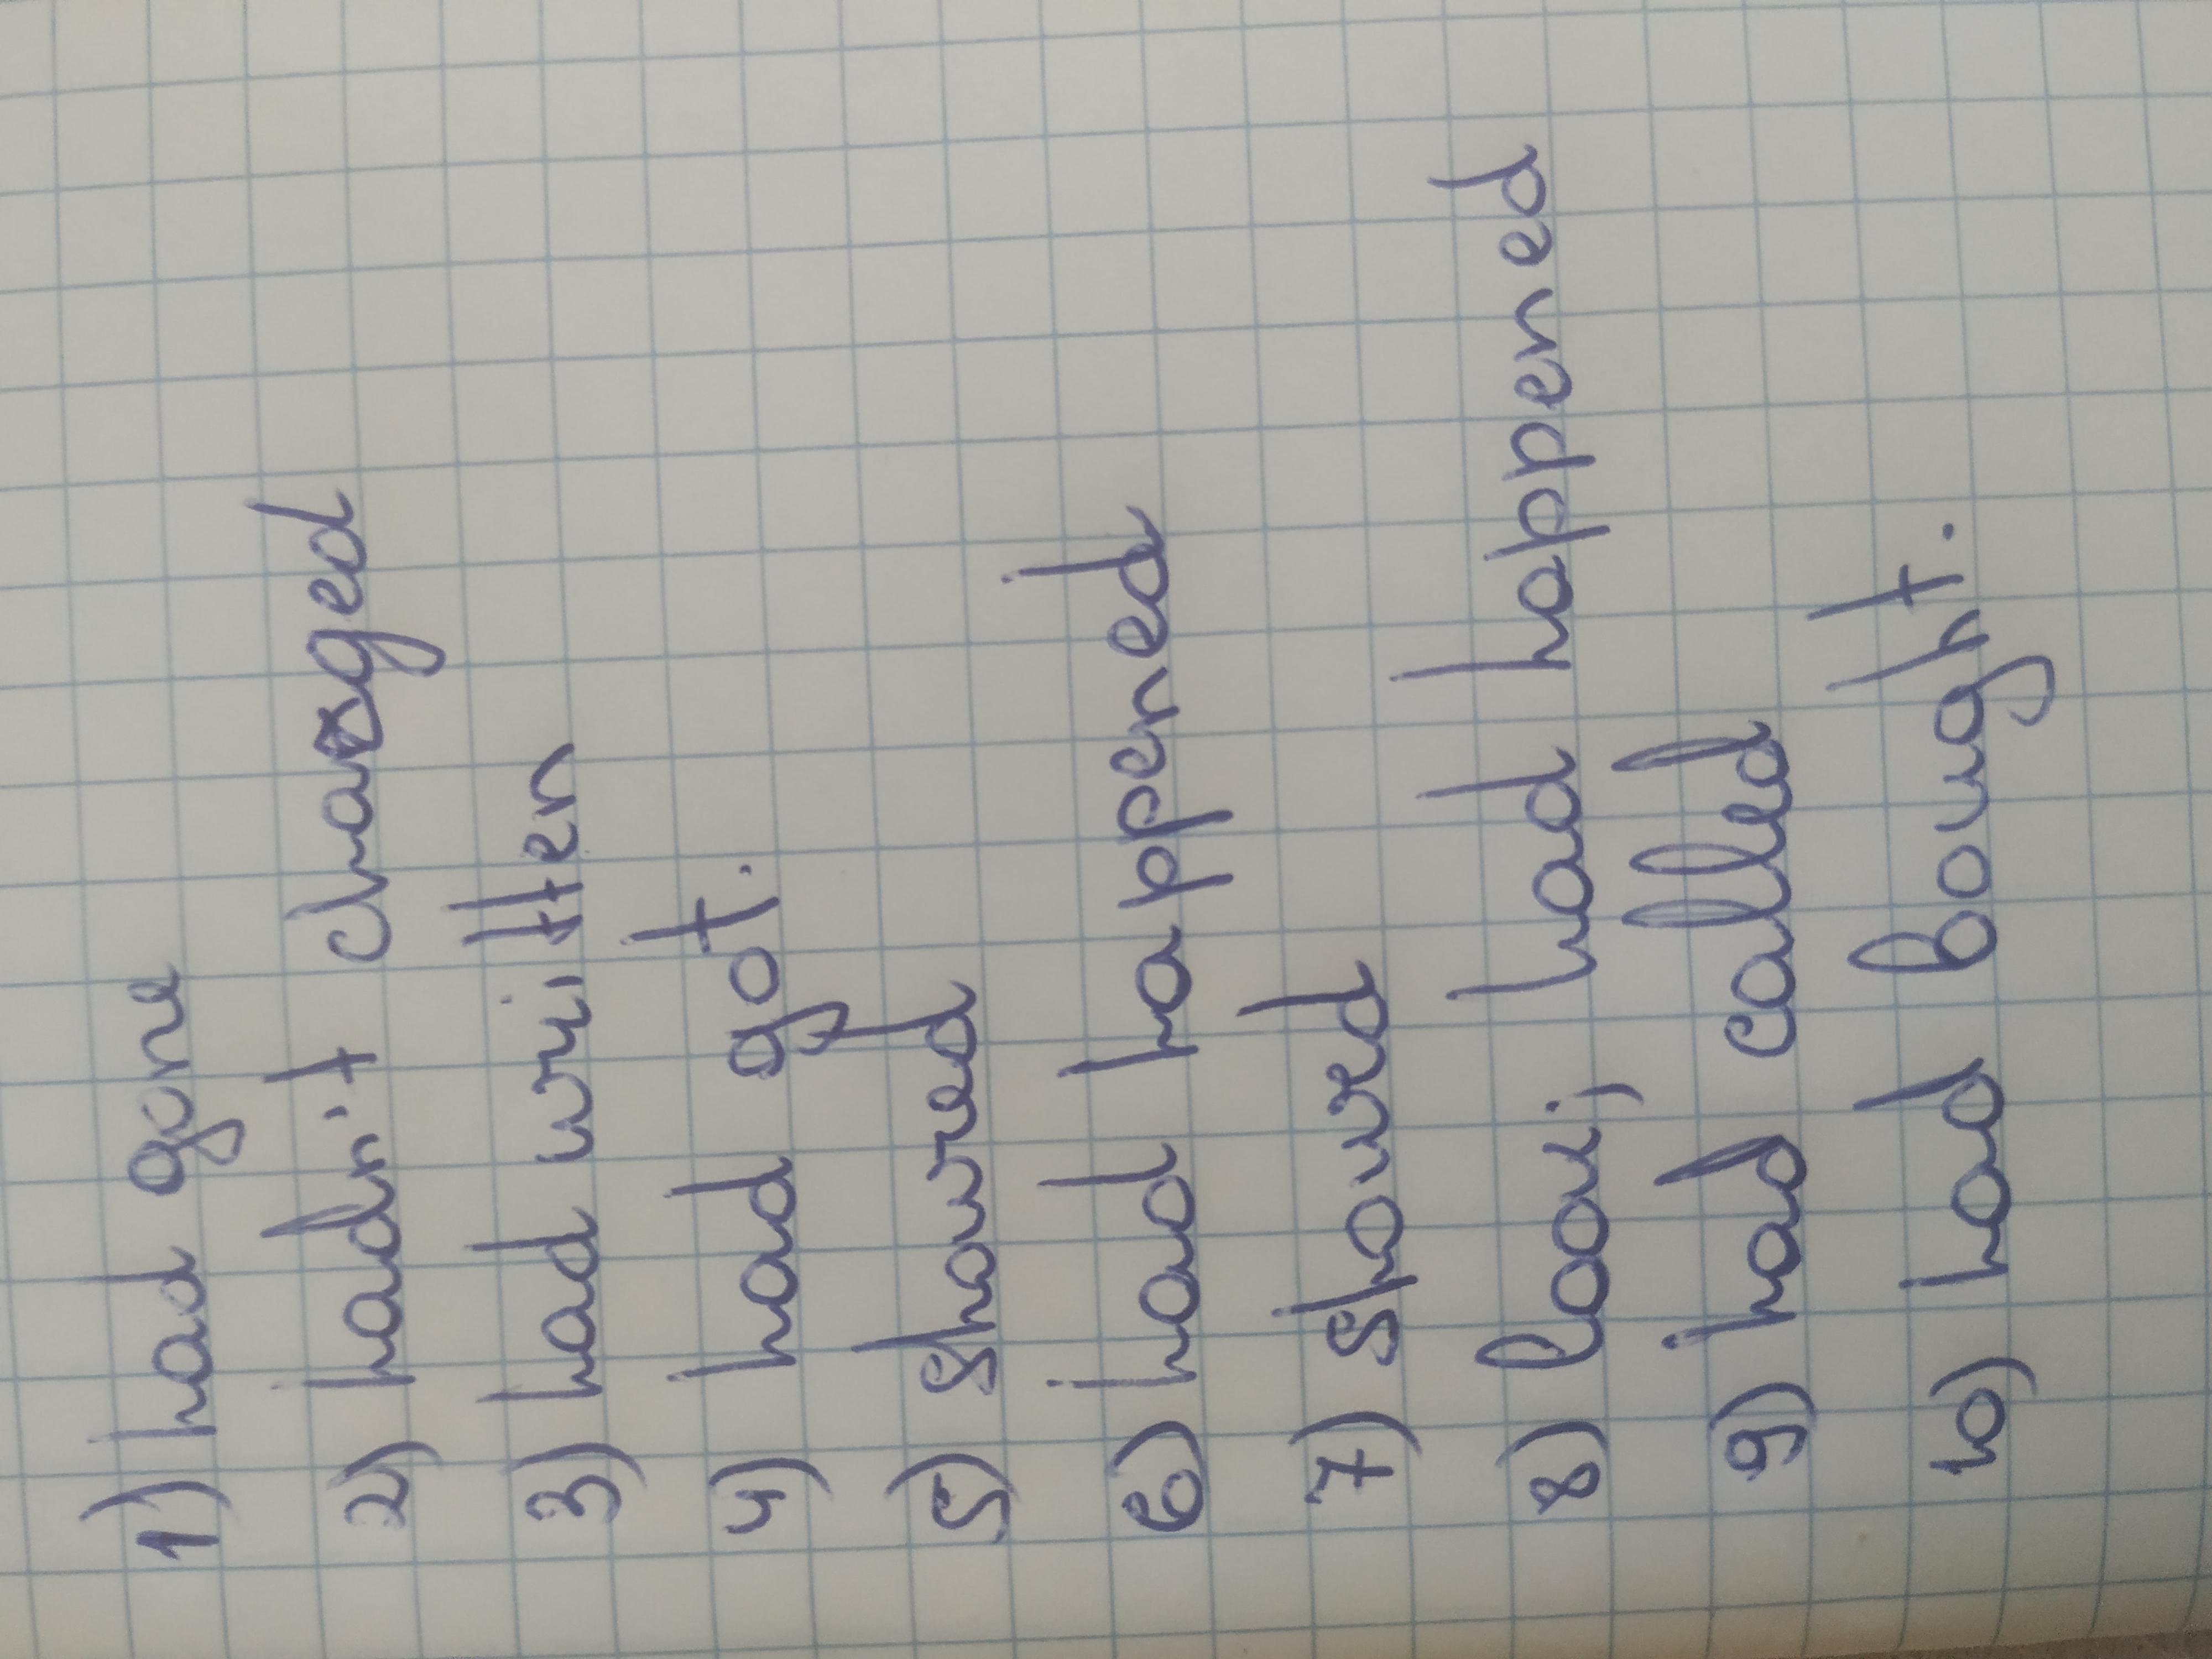 1) had gone
2) hadn't
3) had written
4) had got.
5) showed
6) had happened
7) showed
8) had happened
9) had called
10) had bought.